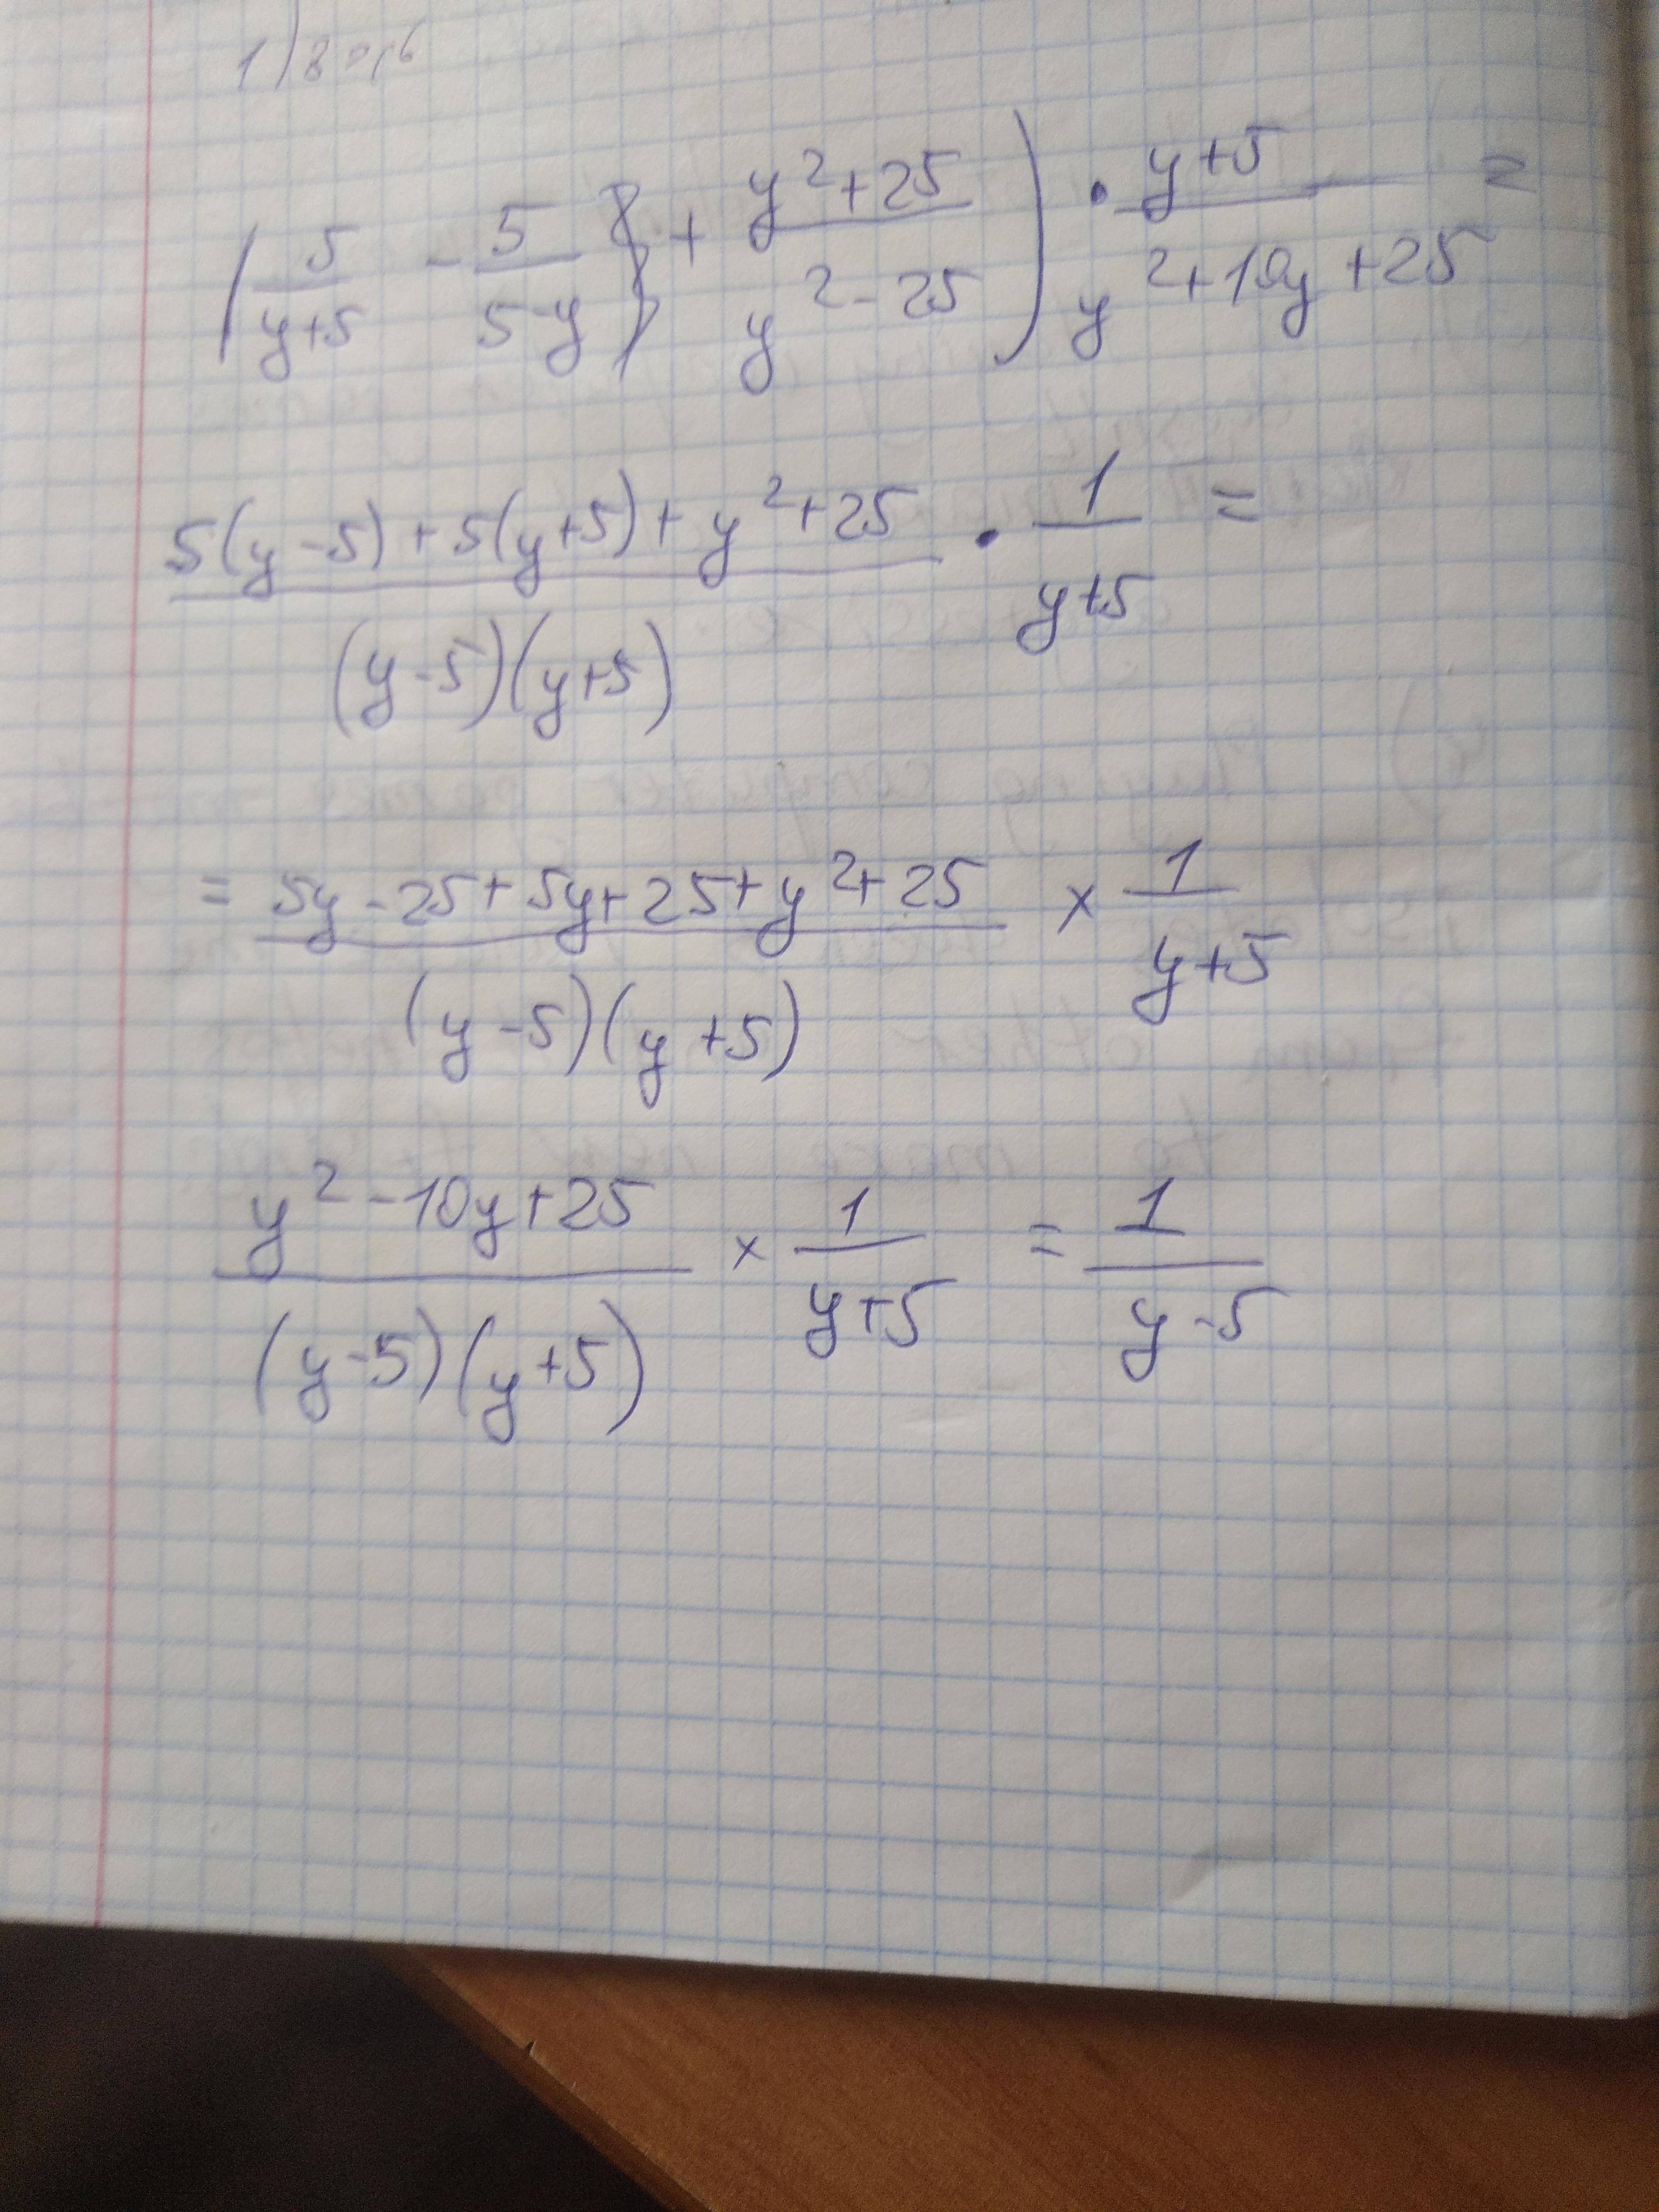 1)
( 5/(y+5) - 5/(5-y) + (y²+25)/(y²-25) ) · (y+5)/(y²+10y+25) =
(5(y-5)+5(y+5)+y²+25)/((y-5)(y+5)) · 1/(y+5) =
= (5y-25+5y+25+y²+25)/((y-5)(y+5)) × 1/(y+5)
(y²-10y+25)/((y-5)(y+5)) × 1/(y+5) = 1/(y-5)